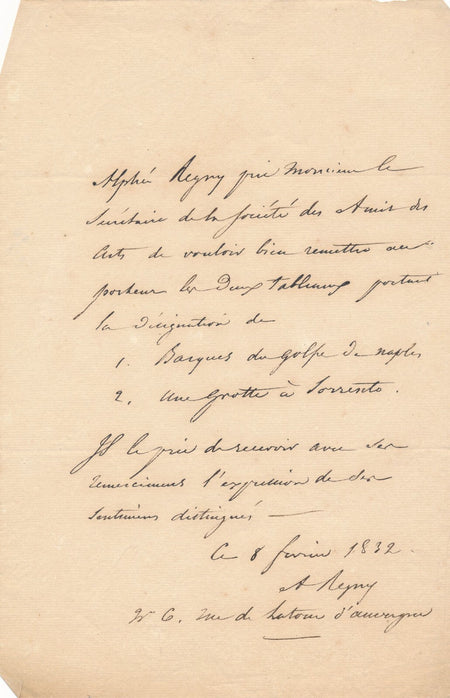 Alphée Regny prie Monsieur le
Secrétaire de la Société des Amis des
Arts de vouloir bien remettre au
porteur les deux tableaux portant
la désignation de
1. Barques du golfe de naples
2. une Grotte à Sorrento.
Il le prie de recevoir avec ses
remerciemens l'expression de ses
sentimens distingués —
Ce 8 février 1832.
A Regny
N° 6. rue de Latour d'auvergne